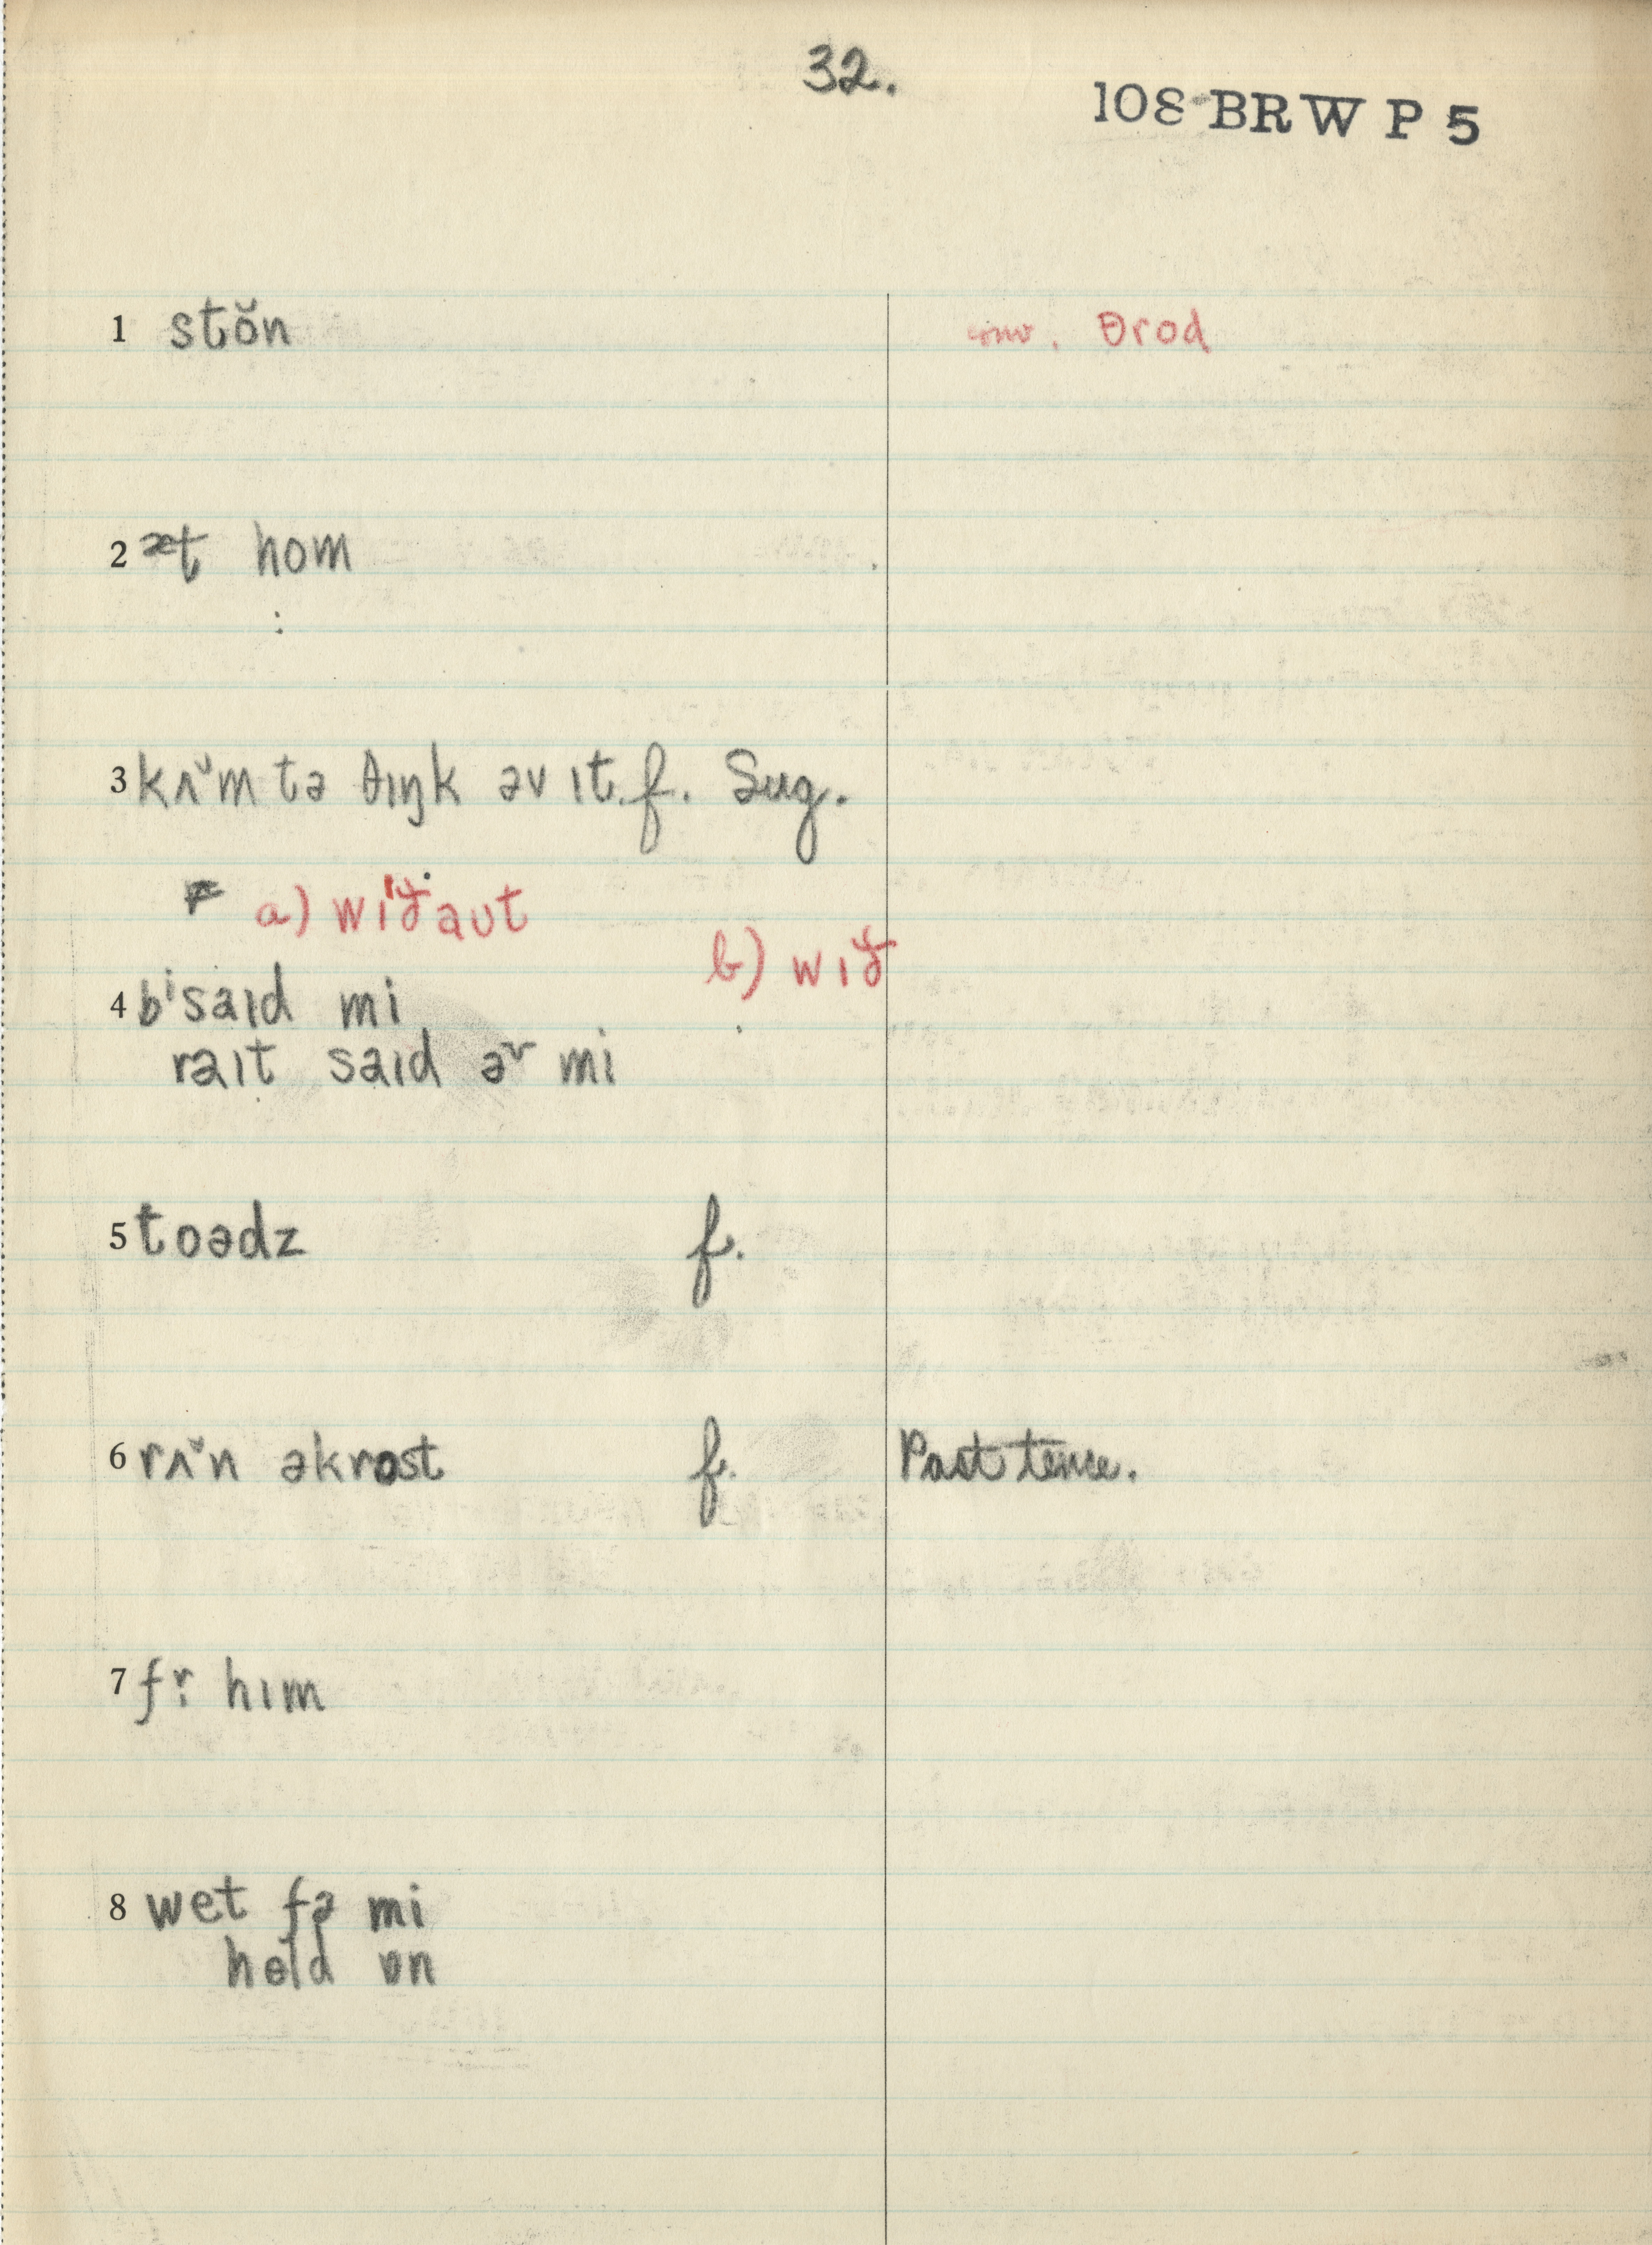 32.
108 BRW P 5
1 stŏn
conv. θrod
2 æt hom
3 kʌ̆m tə θɪŋk əv ɪt f. Sug.
a) wɪð̬aʊt
b) wɪð̬
4 bⁱsaɪd mi
raɪt saɪd əʳ mi
5 toədz f.
6 rʌ̆n əkrɒst f. Past tence.
7 fr̩ hɪm
8 wet fə mi
held ɒn